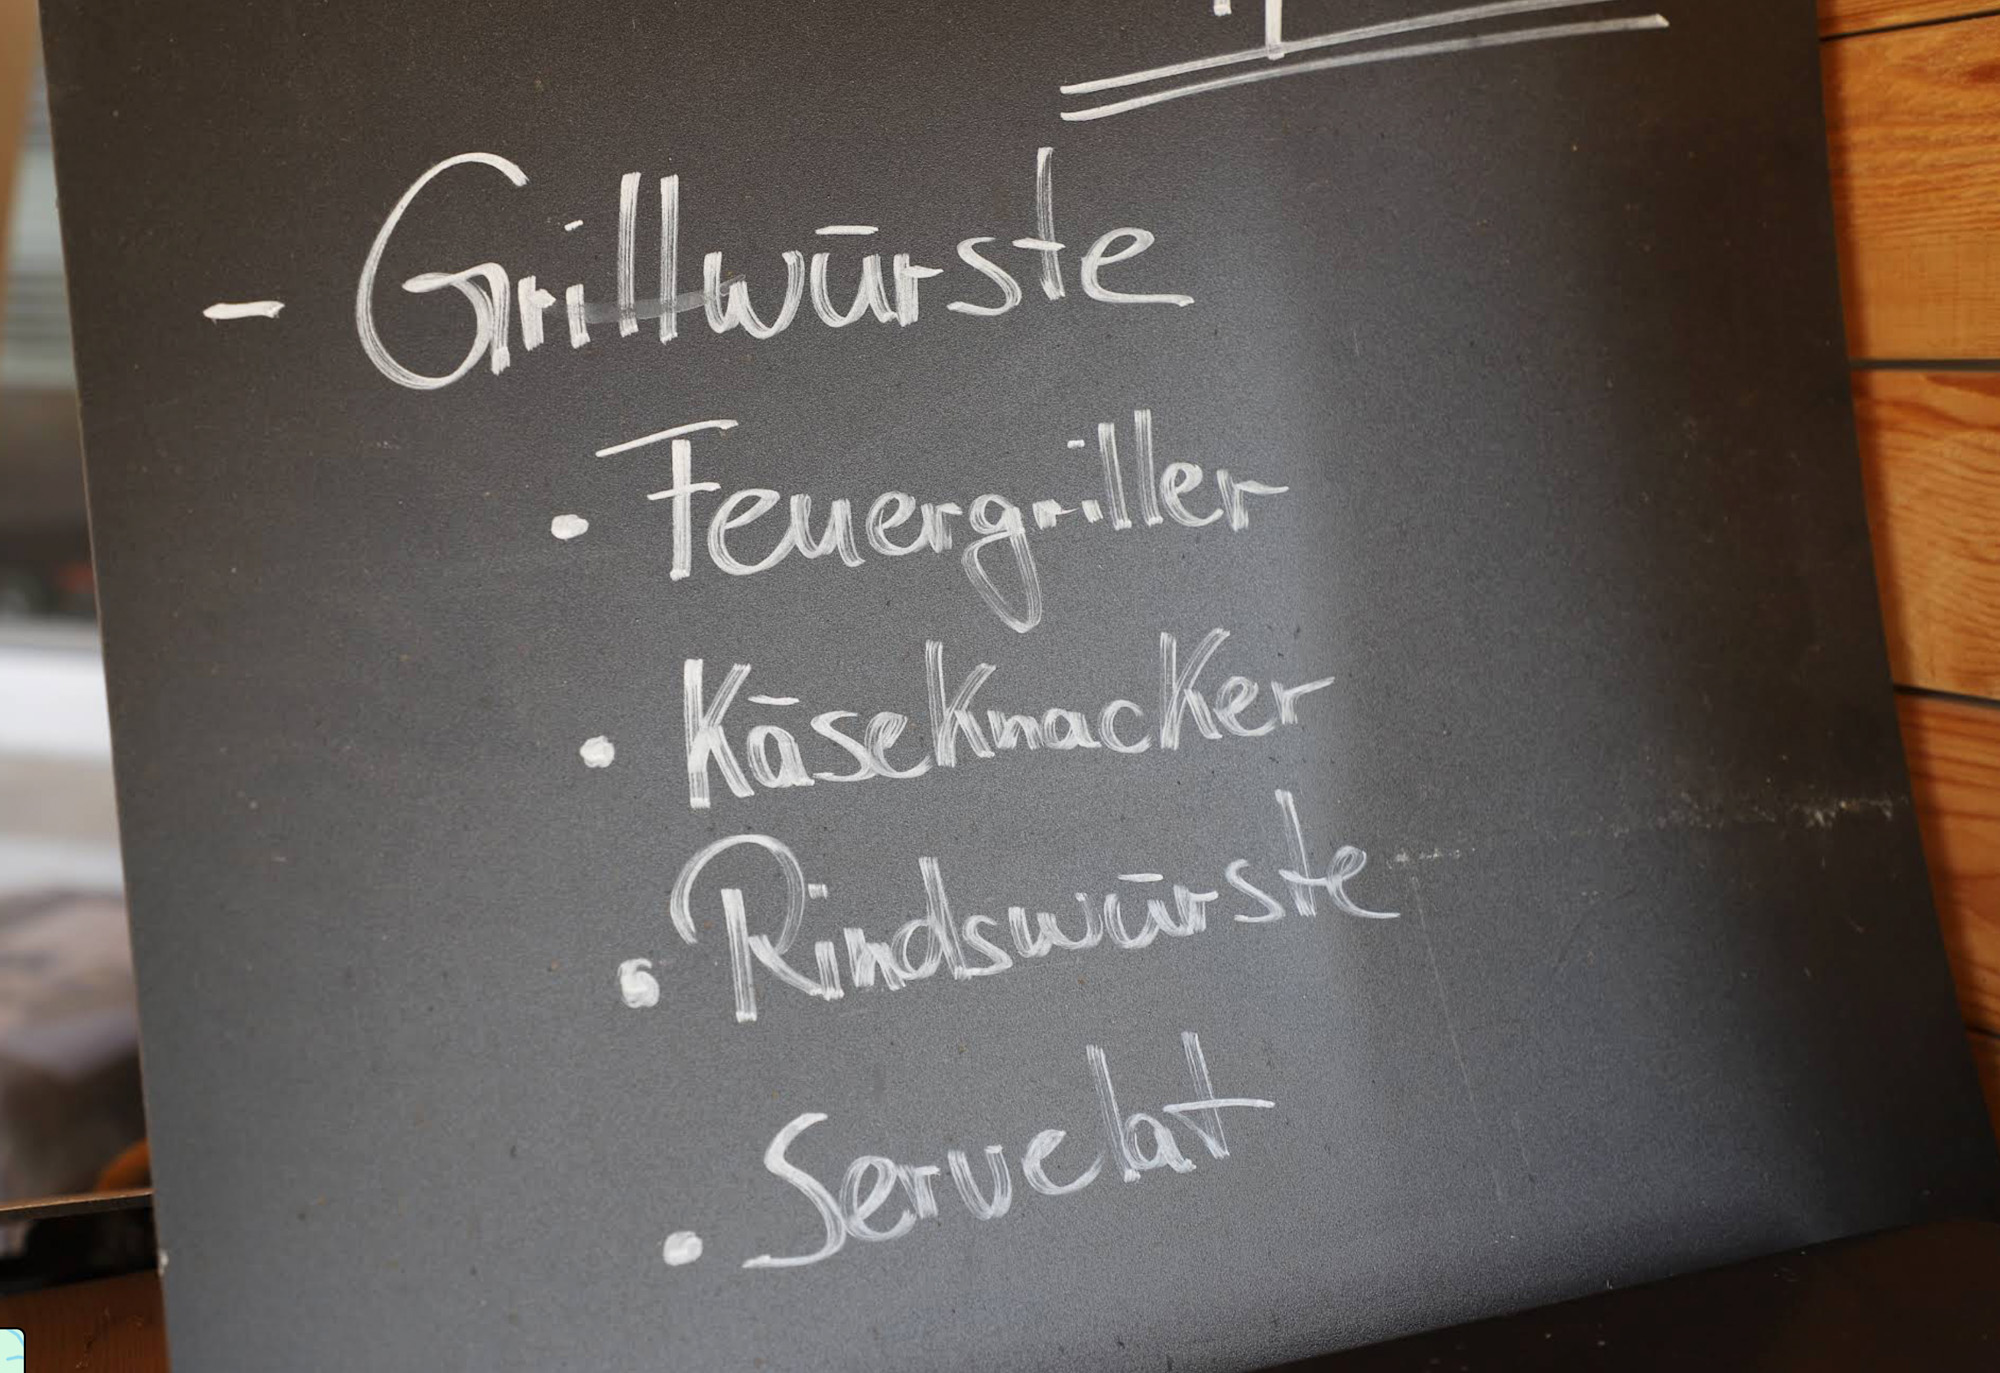 - Grillwürste
• Feuergriller
• Käseknacker
• Rindswürste
• Servelat